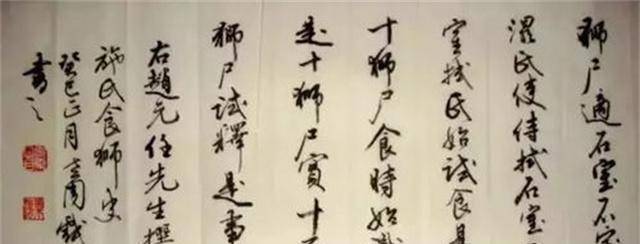 獅尸適石室石室
濕氏使侍拭石室
室拭氏始試食是
十獅尸食時始
是十獅尸實十石
獅尸試釋是事
右趙元任先生撰
施氏食獅史
癸巳正月戲
書之